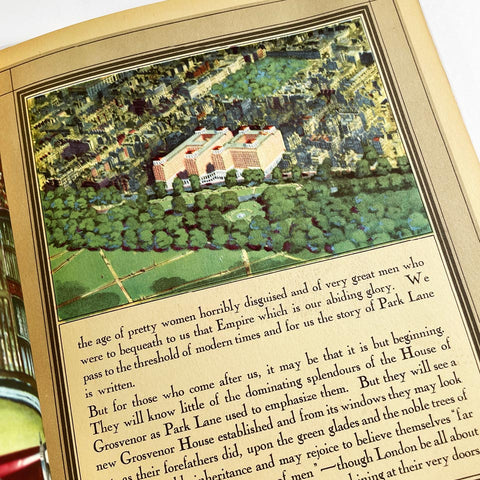 the age of pretty women horribly disguised and of very great men who
were to bequeath to us that Empire which is our abiding glory. We
pass to the threshold of modern times and for us the story of Park Lane
is written.
But for those who come after us, it may be that it is but beginning.
They will know little of the dominating splendours of the House of
Grosvenor as Park Lane used to emphasize them. But they will see a
new Grosvenor House established and from its windows they may look
as their forefathers did, upon the green glades and the noble trees of
inheritance and may rejoice to believe themselves "far
of men"—though London be all about
at their very doors